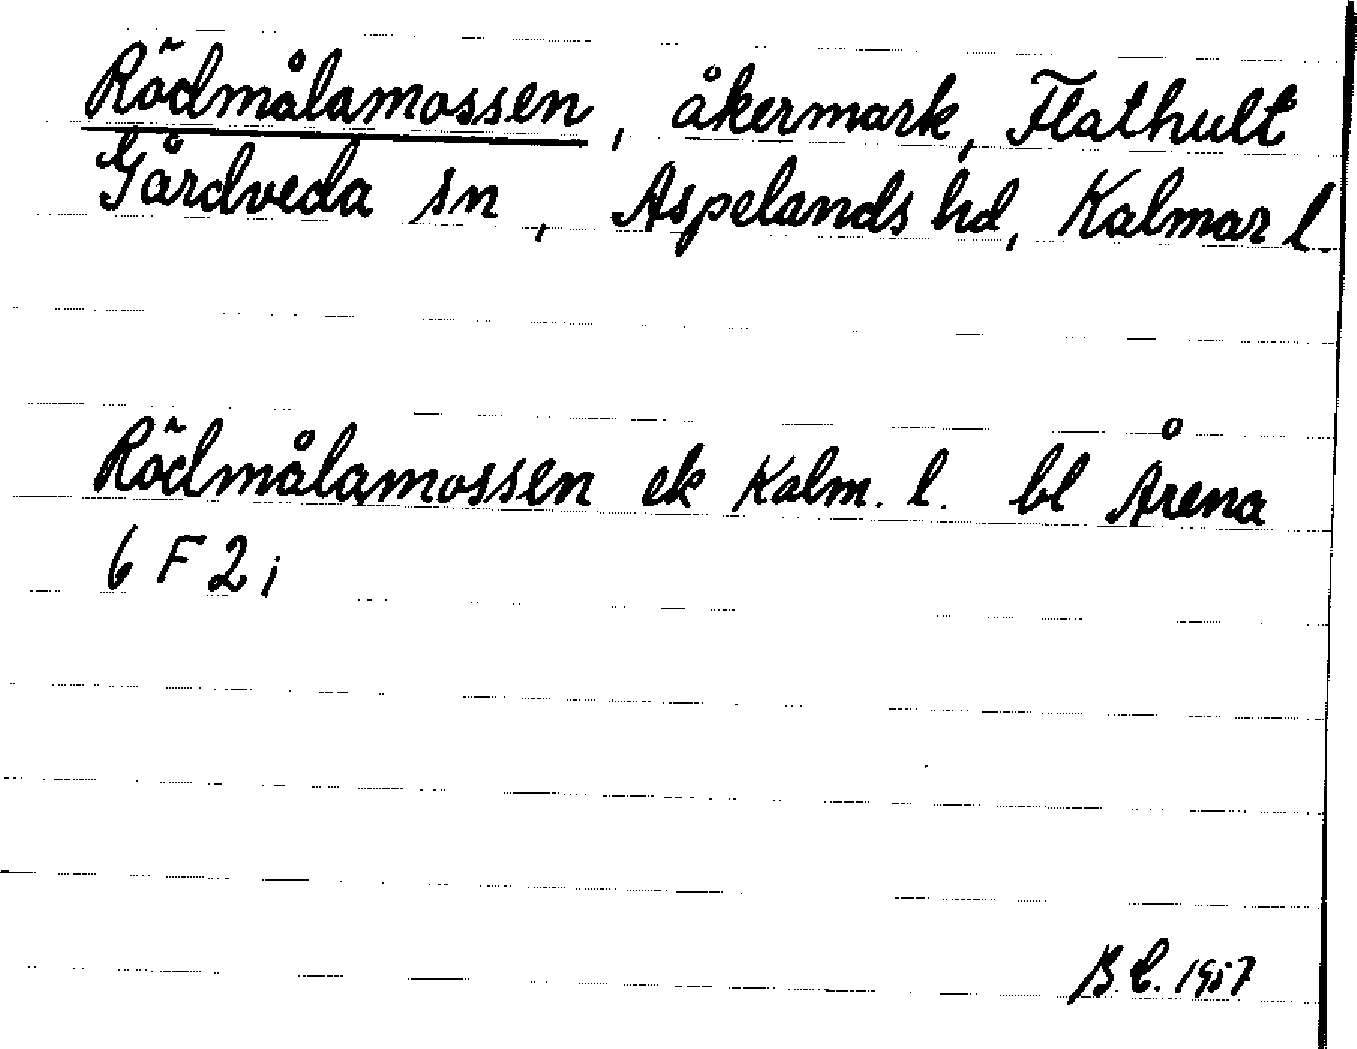 Rödmålamossen, åkermark, Flathult
Gårdveda sn, Aspelands hd, Kalmar l.
Rödmålamossen ek Kalm. l. bl Årena
6 F 2 i
B.C. 1957